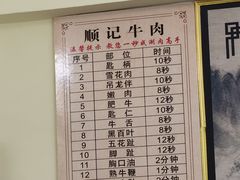 顺记牛肉
温馨提示 教您一秒成涮肉高手
序号 部位 时间
1 匙柄 10秒
2 雪花肉 8秒
3 吊龙伴 10秒
4 嫩肉 8秒
5 肥牛 12秒
6 匙仁 8秒
7 牛舌 8秒
8 黑百叶 8秒
9 五花趾 12秒
10 脚趾 12秒
11 胸口油 2分钟
12 熟牛鞭 1分钟